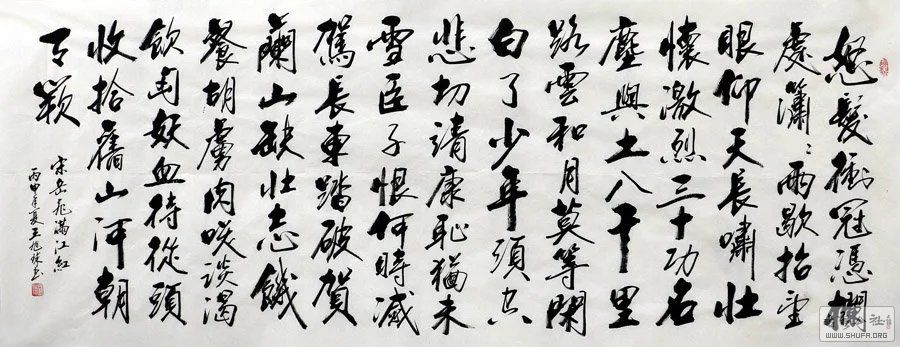 怒髮衝冠憑欄
處瀟〻雨歇抬望
眼仰天長嘯壯
懷激烈三十功名
塵與土八千里
路雲和月莫等閑
白了少年頭空
悲切靖康恥猶未
雪臣子恨何時滅
駕長車踏破賀
蘭山缺壯志饑
餐胡虜肉笑談渴
飲匈奴血待從頭
收拾舊山河朝
天闕
宋岳飛滿江紅
丙申年夏王旭書
WWW.SHUFA.ORG